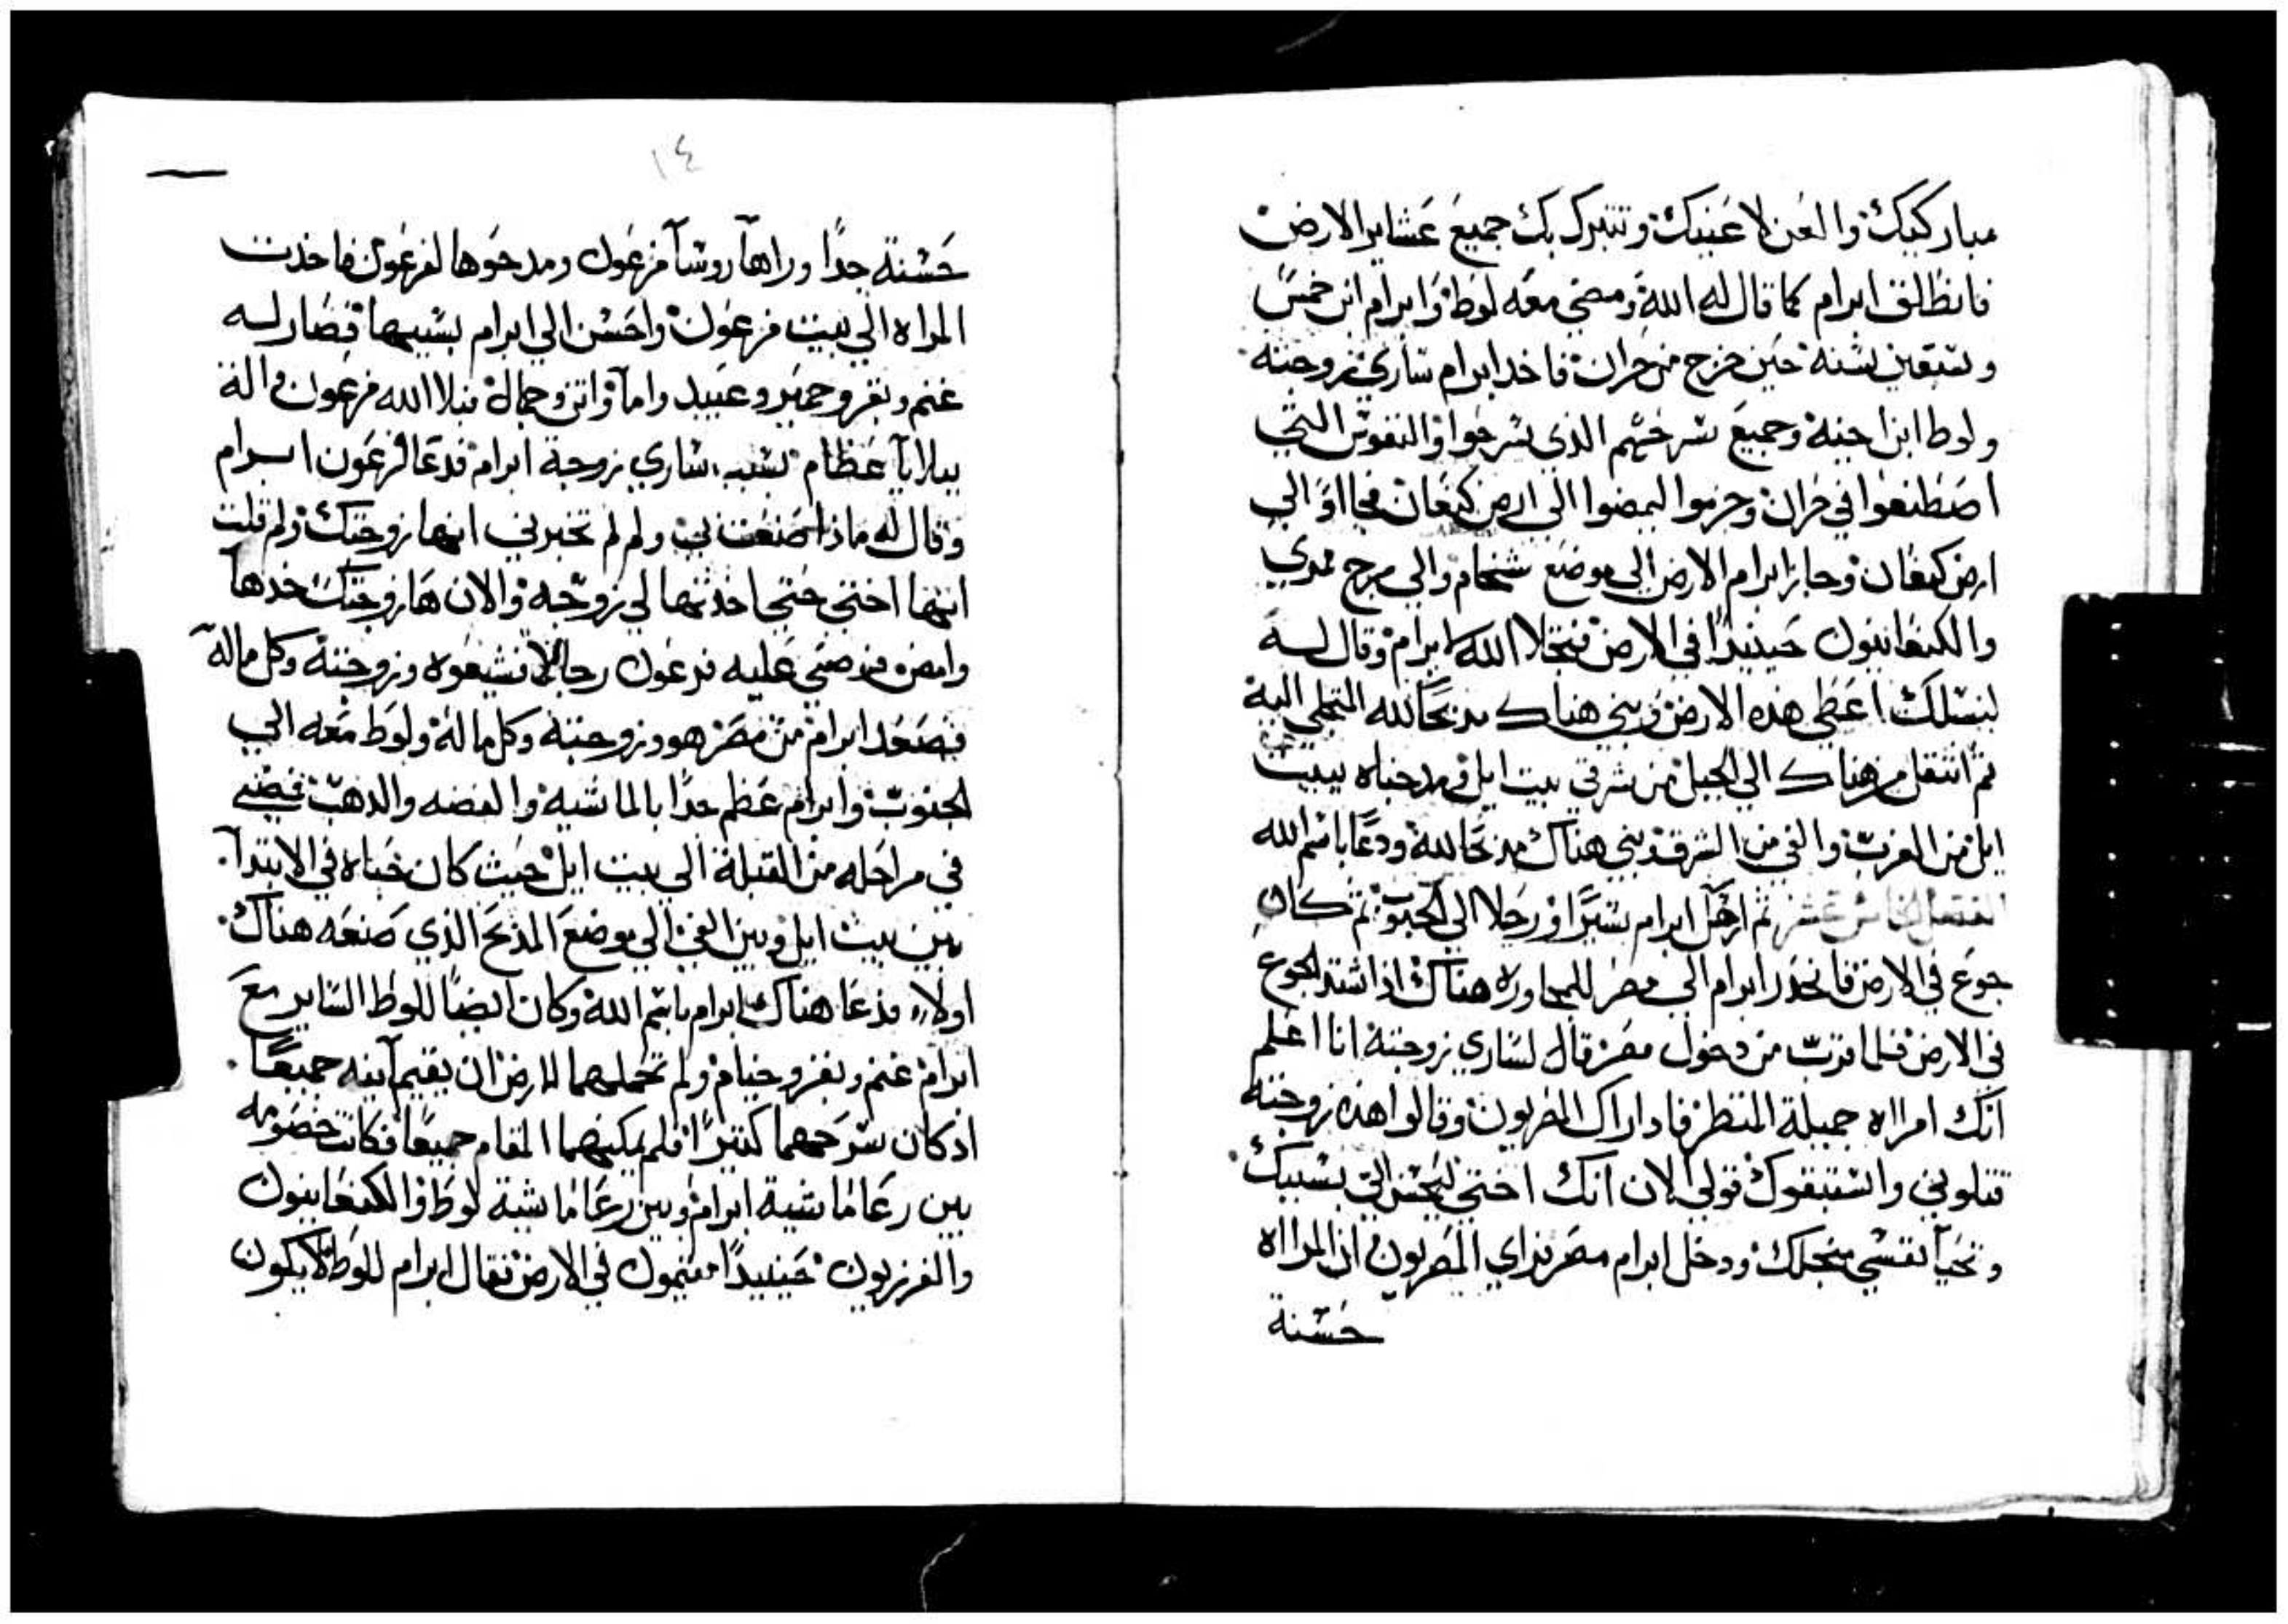 مباركيك والعن لاعنيك وتتبرك بك جميع عشاير الارض
فانطلق ابرام كما قال له الله ومضي معه لوط وابرام ابن خمس
وسبعين سنه حين خرج من حران فاخد ابرام ساري زوجته
ولوط ابن اخيه وجميع سرحهم الذي سرحوا والنفوس التي
اصطنعوا في حران وخرجوا ليمضوا الي ارض كنعان فجااو الي
ارض كنعان وجاز ابرام الارض الي موضع شخام والي مرج ممري
والكنعانيون حينيدا في الارض فتجلا الله لابرام وقال له
لنسلك اعطي هذه الارض وبني هناك مذبحا لله المتجلي اليه
ثم انتقل من هناك الي الجبل من شرقي بيت ايل ومد خباه ببيت
ايل من الغرب والغي من الشرق وبني هناك مذبحا لله ودعا باسم الله
الفصل الخامس عشر ثم ارتحل ابرام سيرا ورحلا الي الجنوب ثم كان
جوع في الارض فانحدر ابرام الي مصر للمجاوره هناك اذ اشتد الجوع
في الارض فلما قرب من دخول مصر قال لساري زوجته انا اعلم
انك امراه جميلة المنظر فادا راك المصريون وقالوا هذه زوجته
قتلوني واستبقوك قولي الان انك اختي ليحسن الي بسببك
وتحيا نفسي منجلك ودخل ابرام مصر فراي المصريون ان المرااه
حسنة
١٤
حسنة جدا وراها روسا فرعون ومدحوها لفرعون فاخذت
المراه الي بيت فرعون واحسن الي ابرام بسببها فصار له
غنم وبقر وحمير وعبيد واما واتن وجمال فبلا الله فرعون واله
ببلايا عظام بسبب ساري زوجة ابرام فدعا فرعون ابرام
وقال له ماذا صنعت بي ولم لم تخبرني انها زوجتك ولم قلت
انها اختي حتي اخذتها لي زوجه والان ها زوجتك خدها
وامض فوصي عليه فرعون رجالا فشيعوه وزوجته وكل ماله
فصعد ابرام من مصر هو وزوجته وكل ماله ولوط معه الي
الجنوب وابرام عظم جدا بالماشيه والفضه والذهب فمضي
في مراحله من القبلة الي بيت ايل حيث كان خباه في الابتدا
بين بيت ايل وبين الغي الي موضع المذبح الذي صنعه هناك
اولا فدعا هناك ابرام باسم الله وكان ايضا للوط الساير مع
ابرام غنم وبقر وخيام ولم تحملهما الارض ان يقيما فيه جميعا
اذ كان سرحهما كثيرا فلم يمكنهما المقام جميعا فكانت خصومه
بين رعا ماشية ابرام وبين رعا ماشية لوط والكنعانيون
والفرزيون حينيدا مقيمون في الارض فقال ابرام للوط لا يكون